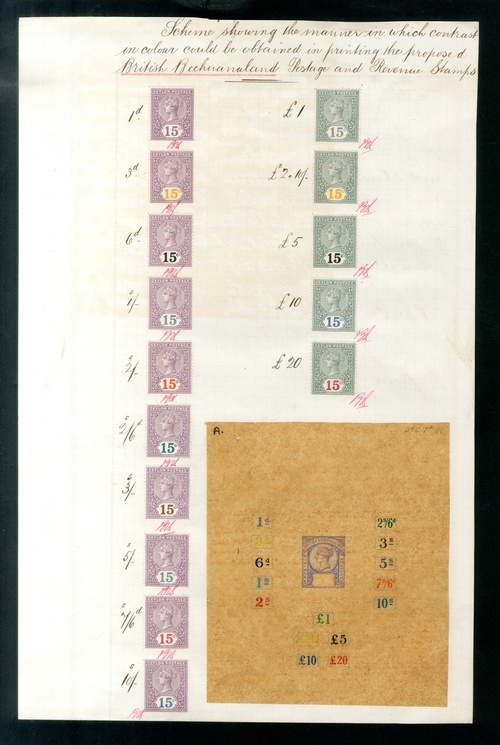 Scheme showing the manner in which contrast
in colour could be obtained in printing the proposed
British Bechuanaland Postage and Revenue Stamps
1d
CEYLON POSTAGE
15c
£1
CEYLON POSTAGE
15c
3d
CEYLON POSTAGE
15c
£2.10/-
CEYLON POSTAGE
15c
6d
CEYLON POSTAGE
15c
£5
CEYLON POSTAGE
15c
1/-
CEYLON POSTAGE
15c
£10
CEYLON POSTAGE
15c
2/-
CEYLON POSTAGE
15c
£20
CEYLON POSTAGE
15c
2/6d
CEYLON POSTAGE
15c
3/-
CEYLON POSTAGE
15c
5/-
CEYLON POSTAGE
15c
7/6d
CEYLON POSTAGE
15c
10/-
CEYLON POSTAGE
15c
A.
1d 2s/6d
3s
6d 5s
1s 7s/6d
2s 10s
£1
£5
£10 £20